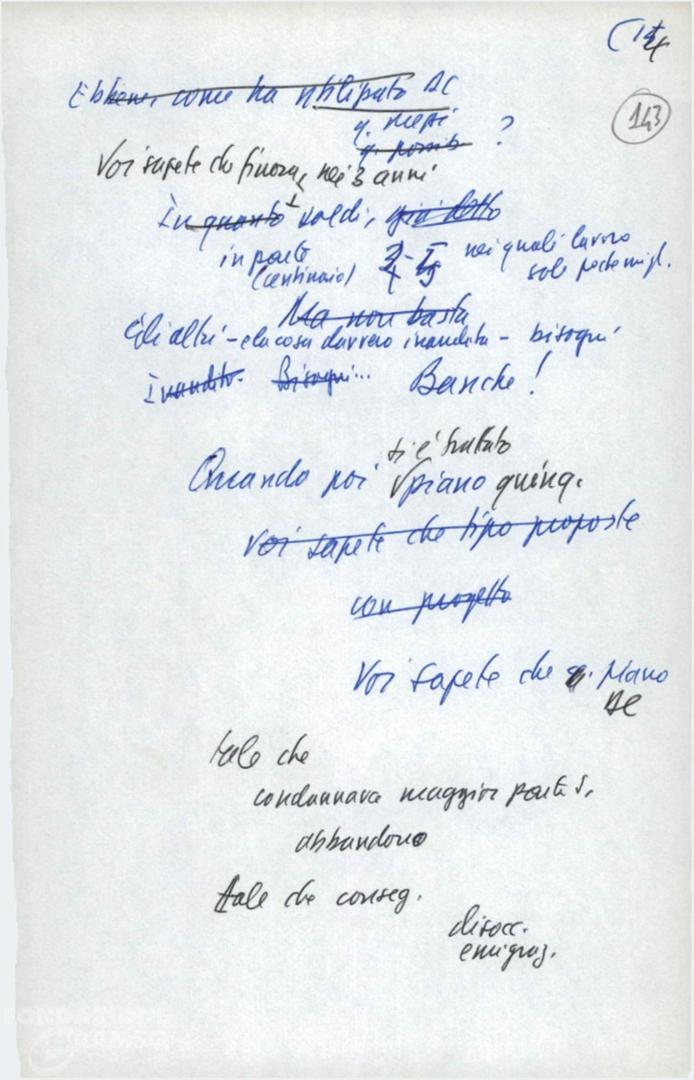 (14
143
Ebbene, come ha utilizzato DC
q. mezzi
q. possib ?
Voi sapete che finora, nei 3 anni
In quanto soldi, già detto
in parte
(centinaio)
nei quali lavoro
solo poche migl.
Ma non basta
Gli altri - e la cosa davvero inaudita - bisogni
Inaudito. Bisogni... Banche!
si è trattato
Quando poi piano quinq.
Voi sapete che tipo proposte
con progetto
Voi sapete che q. Piano
DC
tale che
condannava maggior parte S.
abbandono
tale che conseg.
disocc.
emigraz.
FONDAZIONE
GRAMSCI